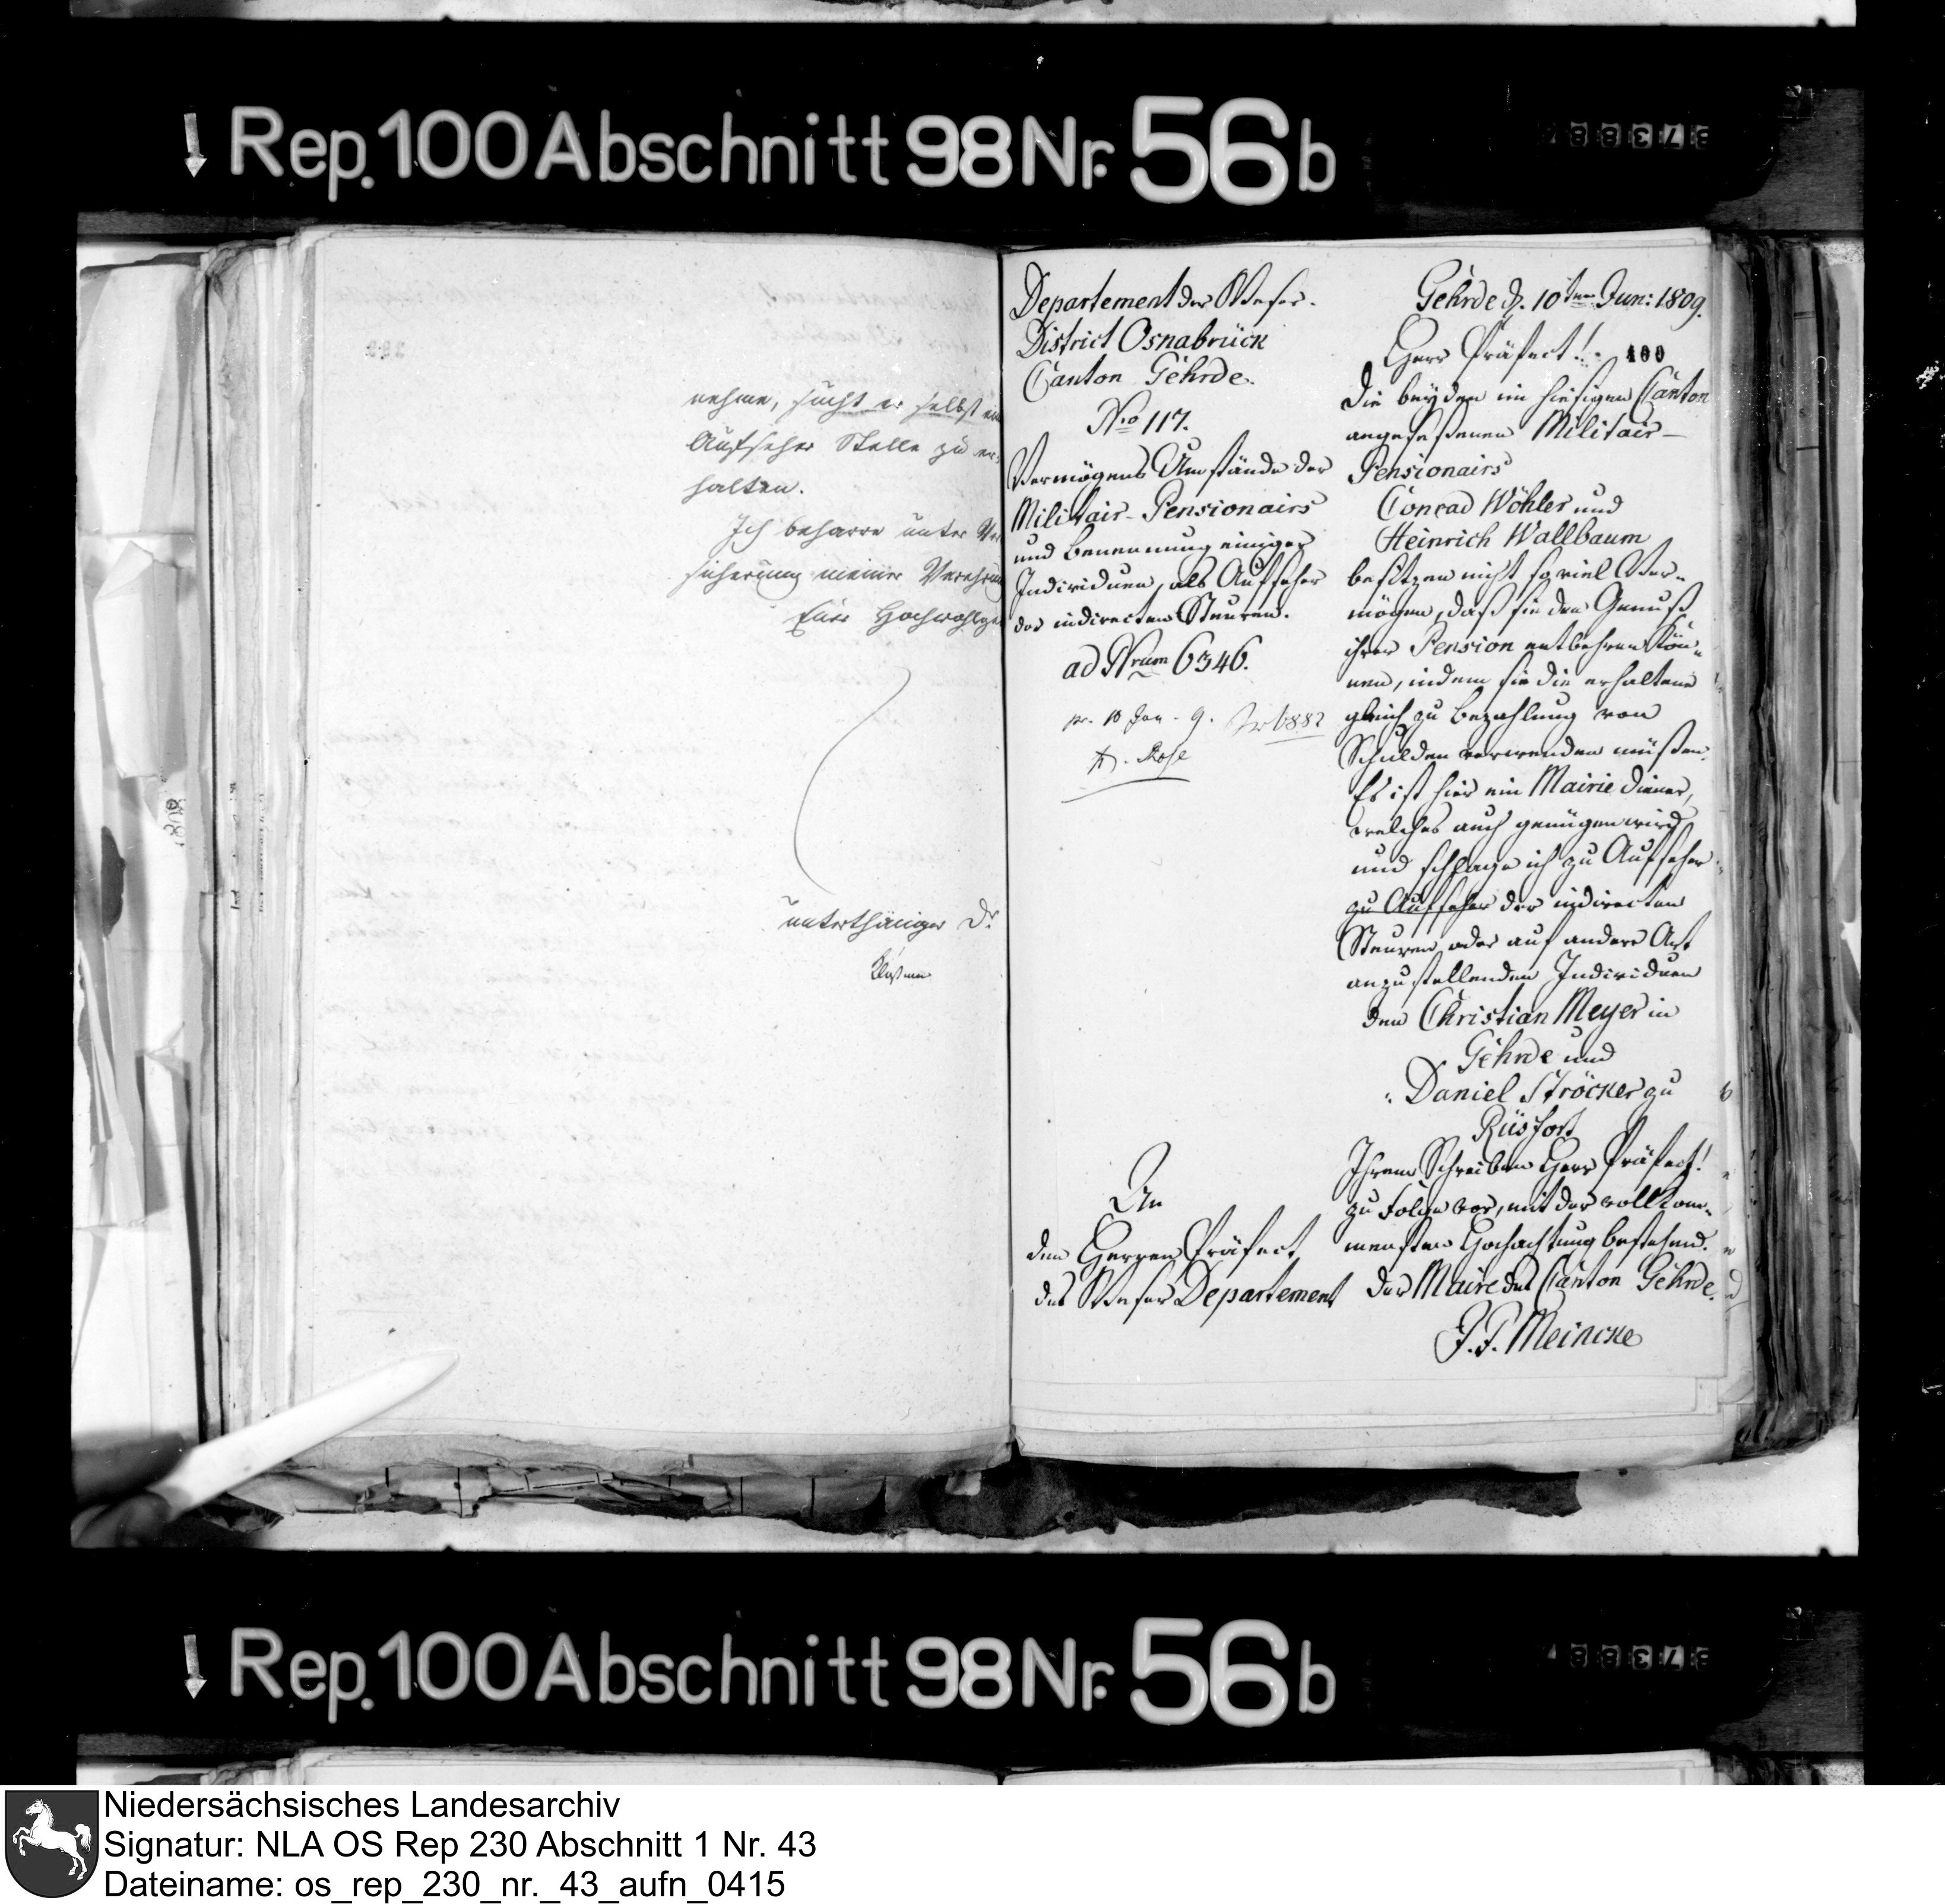 Rep. 100 Abschnitt 98 Nr. 56 b
nehme, sucht er selbst ein
Aufseher Stelle zu er-
halten.
Ich beharre unter Ver
sicherung meiner Verehrung
Euer Hochwohlge
unterthäniger Dr
Departement der Weser.
District Osnabrück
Canton Gehrde.
No 117.
Vermögens Umstände der
Militair-Pensionairs
und Benennung einiger
Individuen, als Aufseher
der indirecten Steuren.
ad Nrum 6346.
An
den Herren Präfect
des Weser Departement
Gehrde d. 10ten Jun: 1809.
Herr Präfect!
400
Die beyden im hiesigen Canton
angesessenen Militair-
Pensionairs
Conrad Wöhler und
Heinrich Wallbaum
besitzen nicht so viel Ver-
mögen, daß sie den Genuß
ihrer Pension entbehren kön-
nen, indem sie die erhaltene
gleich zu Bezahlung von
Schulden verwenden müßen.
Es ist hier ein Mairie diener,
welcher auch genügen wird
und schlage ich zu Aufseher
zu Aufseher der indirecten
Steuren oder auf andere Art
anzustellenden Individuen
den Christian Meyer in
Gehrde und
" Daniel Ströcker zu
Rüsfort
Ihrem Schreiben Herr Präfect!
zu Folge vor, mit der vollkom-
mensten Hochachtung bestehend.
Der Maire des Canton Gehrde.
J. F. Meincke
Rep. 100 Abschnitt 98 Nr. 56 b
Niedersächsisches Landesarchiv
Signatur: NLA OS Rep 230 Abschnitt 1 Nr. 43
Dateiname: os_rep_230_nr._43_aufn_0415